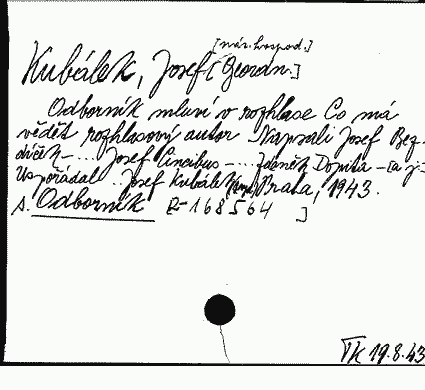 [nár. hospod.]
Kubálek, Josef [Geordn.]
Odborník mluví v rozhlase Co má
vědět rozhlasový autor Napsali Josef Bez-
díček - ... Josef Cincibus - ... Zdeněk Dopita - [a j.]
Uspořádal .. Josef Kubálek Praha, 1943.
s. Odborník [E-168564 ]
VK 19.8.43